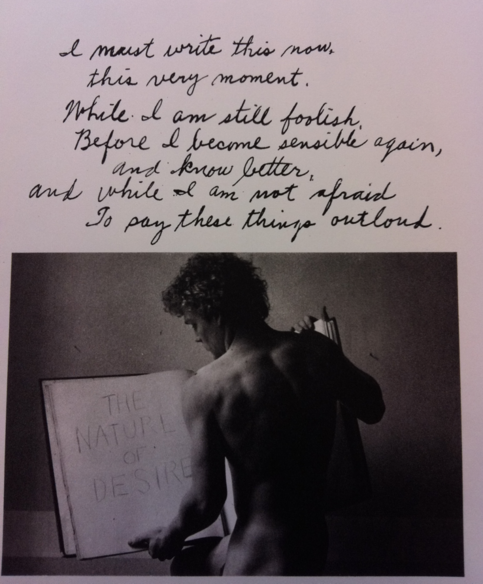 I must write this now,
this very moment.
While I am still foolish,
Before I become sensible again,
and know better,
and while I am not afraid
To say these things outloud.
THE
NATURE
OF
DESIRE